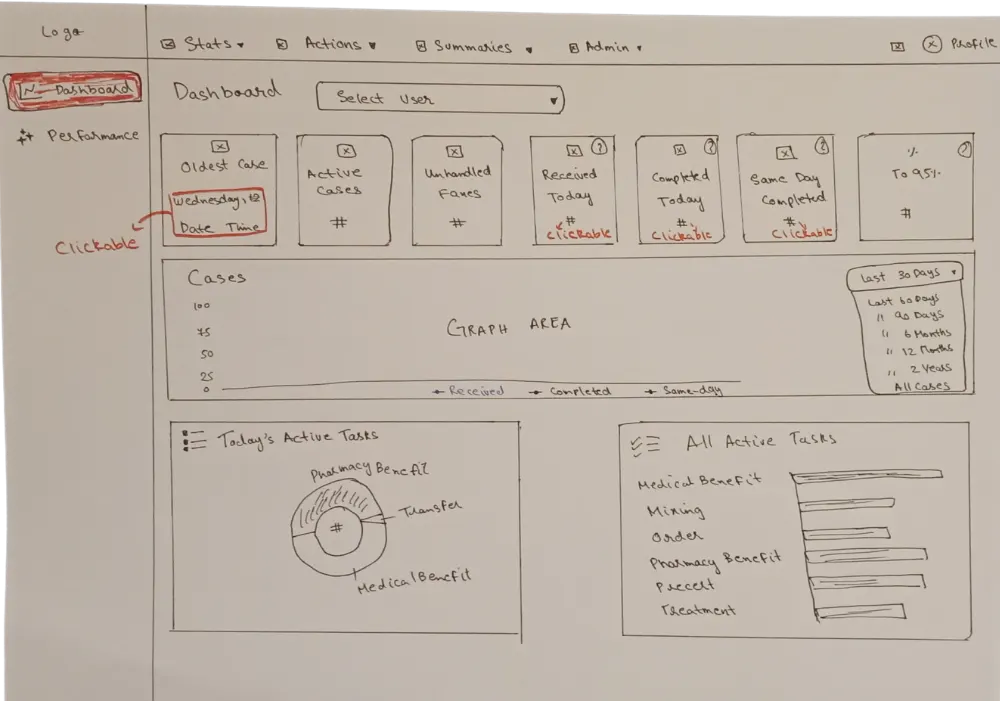 Logo
Stats ▾ Actions ▾ Summaries ▾ Admin ▾ Profile
Dashboard
Performance
Dashboard
Select User ▾
Oldest Case
Wednesday, 12
Date Time
Clickable
Active
Cases
#
Unhandled
Faxes
#
?
Received
Today
#
Clickable
?
Completed
Today
#
Clickable
?
Same Day
Completed
#
Clickable
?
%
To 95%
#
Cases
100
75
50
25
0
GRAPH AREA
Received Completed Same-day
Last 30 Days ▾
Last 60 Days
" 90 Days
" 6 Months
" 12 Months
" 2 Years
All Cases
Today's Active Tasks
Pharmacy Benefit
Transfer
#
Medical Benefit
All Active Tasks
Medical Benefit
Mixing
Order
Pharmacy Benefit
Precert
Treatment